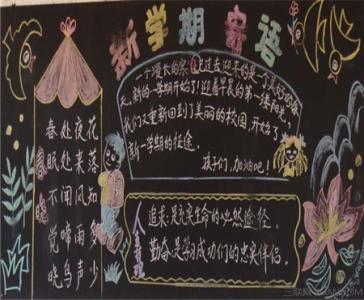 新学期寄语
一个漫长的寒假过去迎来的是一个美好的春
天,新的一学期开始了!迎着早晨的第一缕阳光,
我们又重新回到了美丽的校园,开始了
新一学期的征途。
孩子们,加油吧!
春晓
春眠不觉晓
处处闻啼鸟
夜来风雨声
花落知多少
人生寄语
追求是充实生命的必然途径。
勤奋是学习成功们的忠实伴侣。